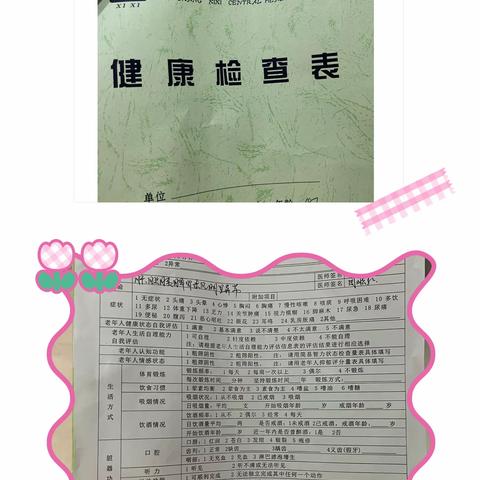 XI XI
XIXI CENTRAL
健康检查表
单位
年龄
2异常
医师签名
附加项目
医师签名
症状 1 无症状 2 头痛 3 头晕 4 心悸 5 胸闷 6 胸痛 7 慢性咳嗽 8 咳痰 9 呼吸困难 10 多饮
11 多尿 12 体重下降 13 乏力 14 关节肿痛 15 视力模糊 16 手脚麻木 17 尿急 18 尿痛
19 便秘 20 腹泻 21 恶心呕吐 22 眼花 23 耳鸣 24 乳房胀痛 25其他
老年人健康状态自我评估 1 满意 2 基本满意 3 说不清楚 4 不太满意 5 不满意
老年人生活自理能力自我评估 1 可自理 2 轻度依赖 3 中度依赖 4 不能自理
注:请根据老年人生活自理能力评估信息表的评估结果进行相应选择
老年人认知功能 1 粗筛阴性 2 粗筛阳性 注:请用简易智力状态检查量表具体填写
老年人情感状态 1 粗筛阴性 2 粗筛阳性 注:请用老年人抑郁评分量表具体填写
生活方式
体育锻炼 锻炼频率:1 每天 2 每周一次以上 3 偶尔 4 不锻炼
每次锻炼时间 分钟 坚持锻炼时间 年 锻炼方式:
饮食习惯 1 荤素均衡 2 荤食为主 3 素食为主 4 嗜盐 5 嗜油 6 嗜糖
吸烟情况 吸烟状况:1 从不吸烟 2 已戒烟 3 吸烟
日吸烟量:平均 支 开始吸烟年龄 岁 或戒烟年龄 岁
饮酒情况 饮酒频率:1 从不 2 偶尔 3 经常 4 每天
日饮酒量平均 两 是否戒酒:1未戒酒 2已戒酒,戒酒年龄: 岁
开始饮酒年龄 岁 近一年内是否曾醉酒:1是 2否
脏器功
口腔 口唇:1 红润 2 苍白 3 发绀 4 皲裂 5 疱疹
齿列:1 正常 2缺齿 3龋齿 4义齿(假牙)
咽部:1 无充血 2 充血 3 淋巴滤泡增生
听力 1 听见 2 听不清或无法听见
1 可顺利完成 2 无法独立完成其中任何一个动作